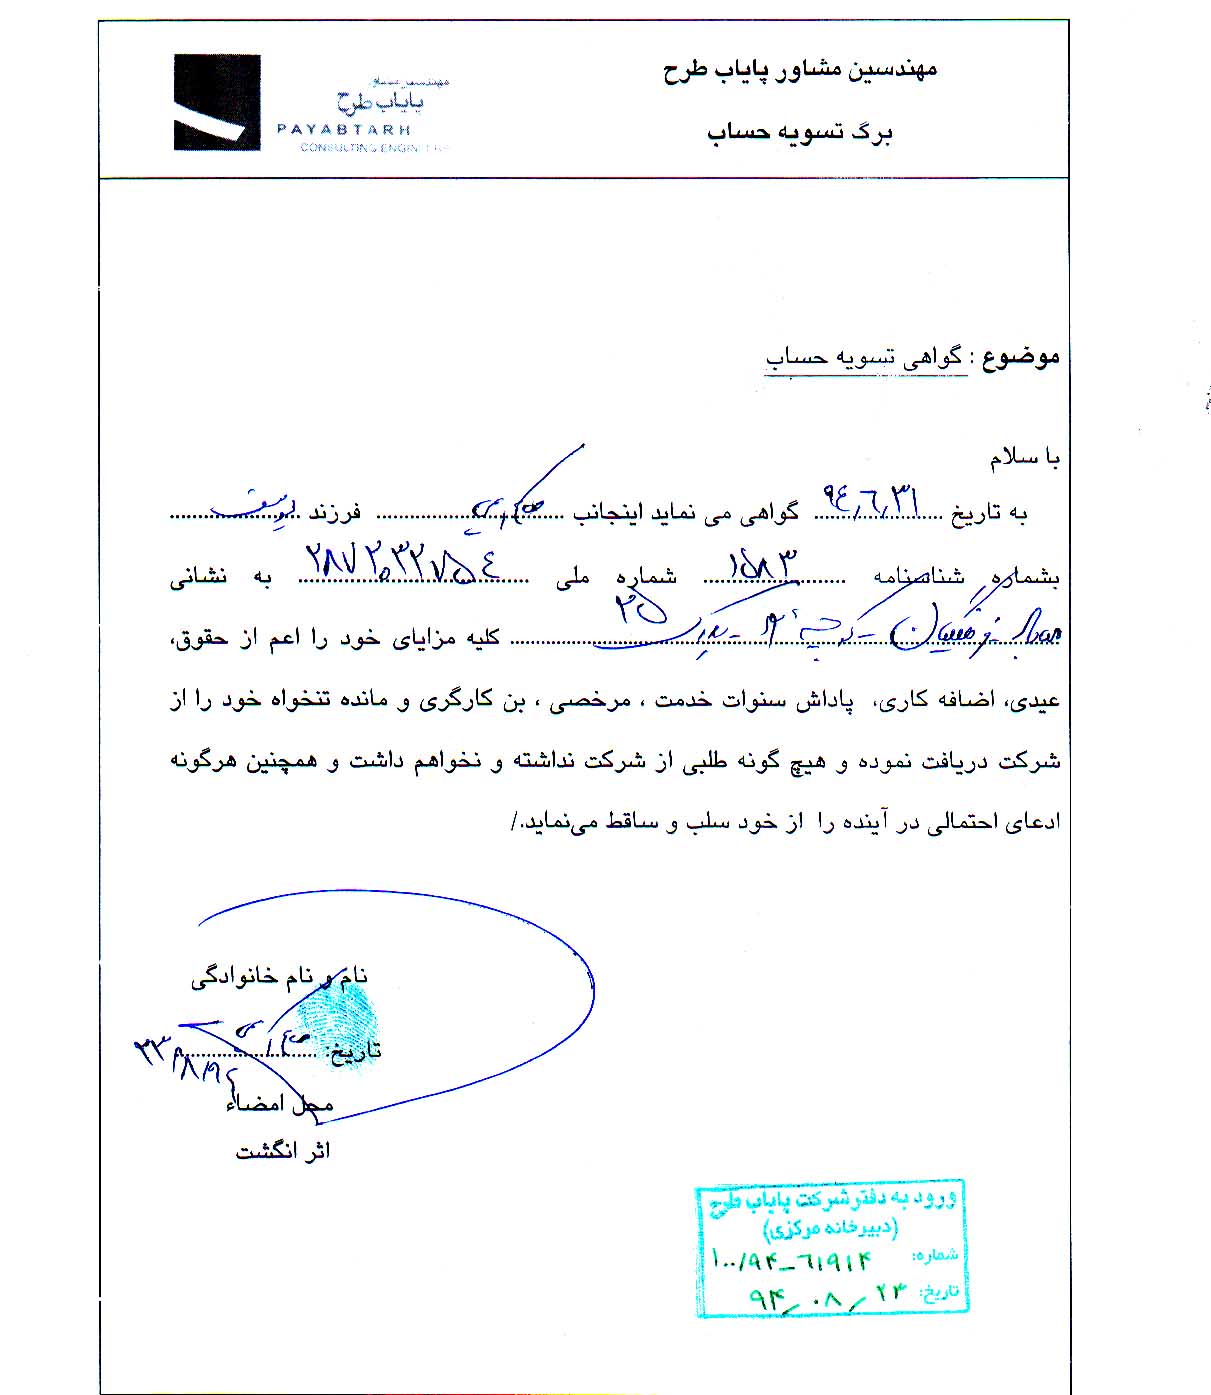 مهندسین مشاور پایاب طرح
برگ تسویه حساب
مهندسین مشاور
پایاب طرح
PAYABTARH
CONSULTING ENGINEERS
موضوع : گواهی تسویه حساب
با سلام
به تاریخ ۹٤,٦,۳۱ گواهی می نماید اینجانب فرزند یوسف
بشماره شناسنامه ۱۵۸۳ شماره ملی ۲۸۷۲۰۳۲۷۵٤ به نشانی
کوچه ۲۵ کلیه مزایای خود را اعم از حقوق،
عیدی، اضافه کاری، پاداش سنوات خدمت ، مرخصی ، بن کارگری و مانده تنخواه خود را از
شرکت دریافت نموده و هیچ گونه طلبی از شرکت نداشته و نخواهم داشت و همچنین هرگونه
ادعای احتمالی در آینده را از خود سلب و ساقط می‌نماید./
نام و نام خانوادگی
تاریخ: ۲۳/۸/۹٤
محل امضاء
اثر انگشت
ورود به دفتر شرکت پایاب طرح
(دبیرخانه مرکزی)
شماره: ۱۰۰/۹۴-۶۱۹۱۴
تاریخ: ۹۴/۰۸/۲۳